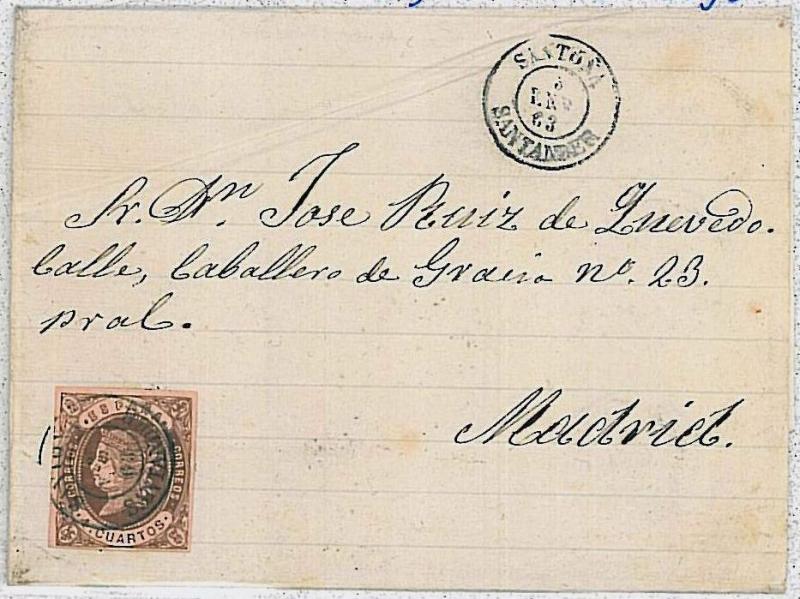 SANTOÑA
3
ENE
63
SANTANDER
Sr. Dn Jose Ruiz de Quevedo.
Calle, Caballero de Gracia no. 23.
pral.
Madrid.
ESPAÑA
CORREOS
CORREOS
4 CUARTOS